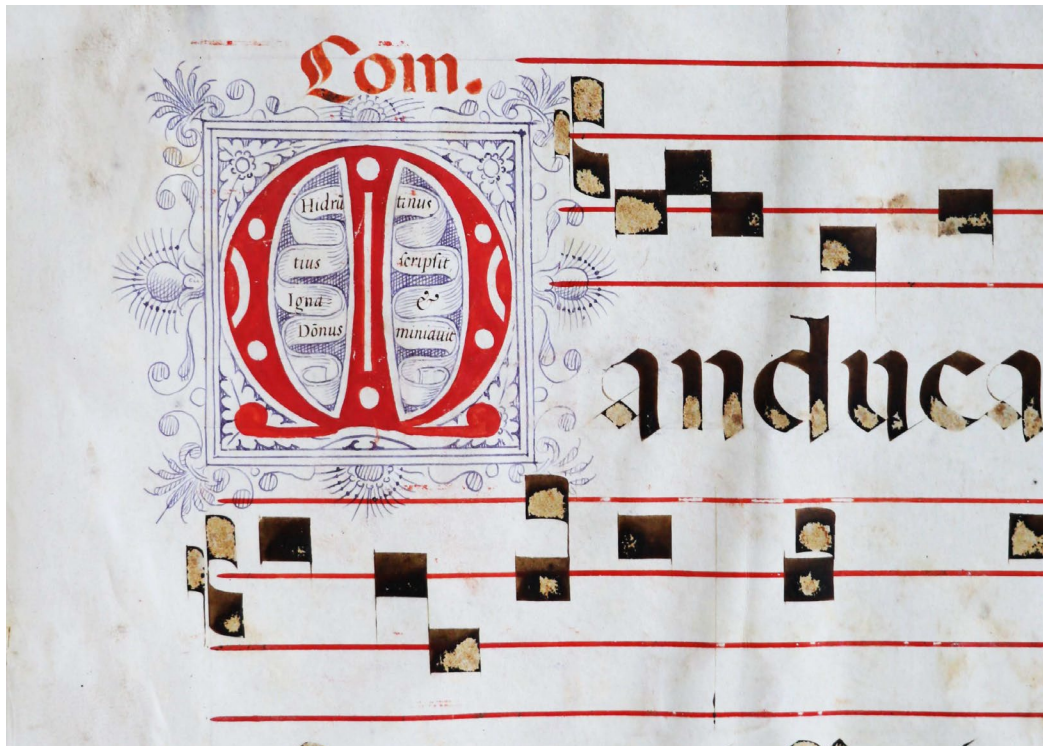 Com.
Hidrũ tinus
tius scripsit
Igna= &
Dõnus miniauit
Manduca